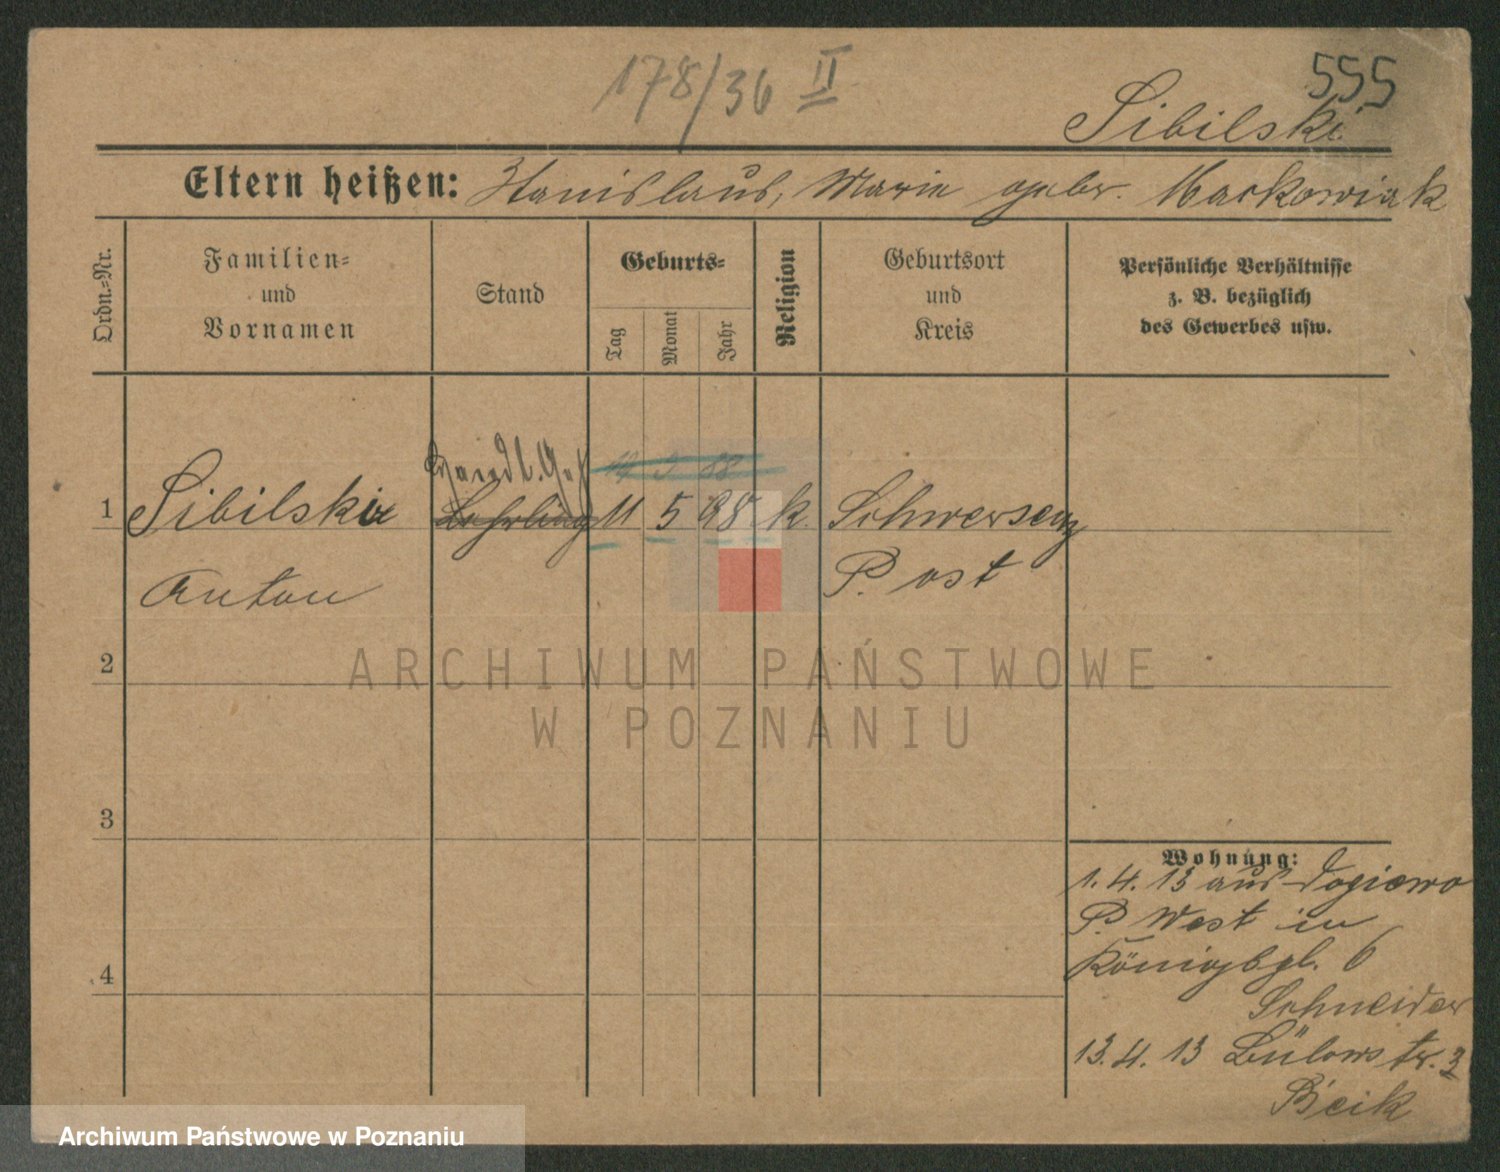 178/36 II
555
Sibilski
Eltern heißen: Stanislaus, Marie gebr. Markowiak
Ordn.-Nr.
Familien-
und
Vornamen
Stand
Geburts-
Tag
Monat
Jahr
Religion
Geburtsort
und
Kreis
Persönliche Verhältnisse
z. B. bezüglich
des Gewerbes usw.
Handl. Geh
1 Sibilski Lehrling 11 5 98 k. Schwersenz
Anton P. ost
ARCHIWUM PAŃSTWOWE
W POZNANIU
2
3
4
Wohnung:
1. 4. 13 aus Dopiewo
P. West in
Königsgl. 6
Schneider
13. 4. 13 Bülowstr. 3
Bcik
Archiwum Państwowe w Poznaniu